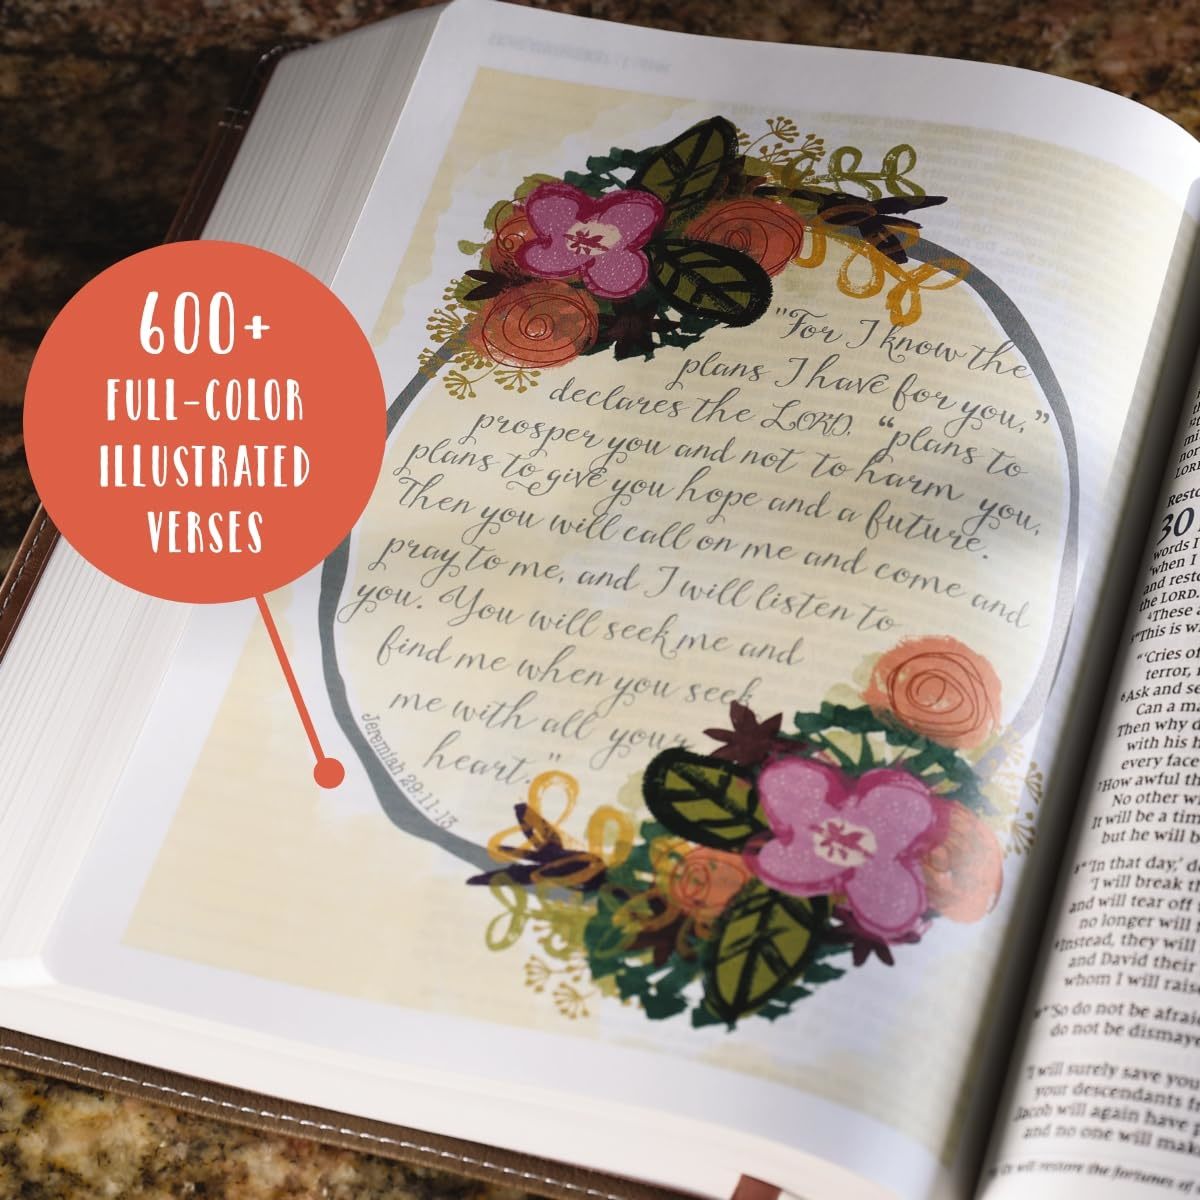 600+
FULL-COLOR
ILLUSTRATED
VERSES
"For I know the
plans I have for you,"
declares the LORD, "plans to
prosper you and not to harm you,
plans to give you hope and a future.
Then you will call on me and come and
pray to me, and I will listen to
you. You will seek me and
find me when you seek
me with all your
heart."
Jeremiah 29:11-13
30
words I
"when I
and resto
the LORD.
"This is w
"'Cries of
terror,
Ask and se
Can a ma
Then why d
with his h
every face
How awful th
No other w
It will be a tim
but he will b
"'In that day,' d
'I will break t
and will tear off
no longer will
Instead, they will
and David their
whom I will raise
"'So do not be afraid
do not be dismaye
'I will surely save you
your descendants f
Jacob will again have p
and no one will mak